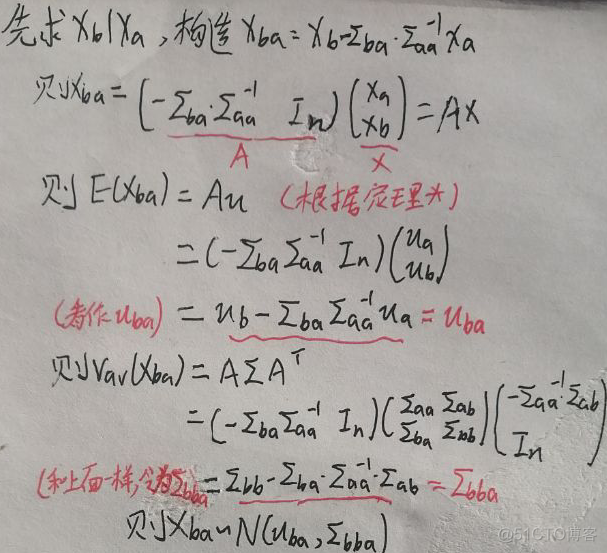 先求 Xb|Xa , 构造 Xba = Xb-Σba·Σaa⁻¹Xa
则 Xba = (-Σba·Σaa⁻¹ In)(Xa Xb) = AX
A X
则 E(Xba) = Au (根据定理*)
= (-Σba Σaa⁻¹ In)(ua ub)
(看作uba) = ub - Σba Σaa⁻¹ ua = uba
则 Var(Xba) = AΣAᵀ
= (-Σba Σaa⁻¹ In)(Σaa Σab Σba Σbb)(-Σaa⁻¹Σab In)
(和上面一样,令为Σbba = Σbb - Σba·Σaa⁻¹·Σab = Σbba
则 Xba ~ N(uba, Σbba)
@51CTO博客